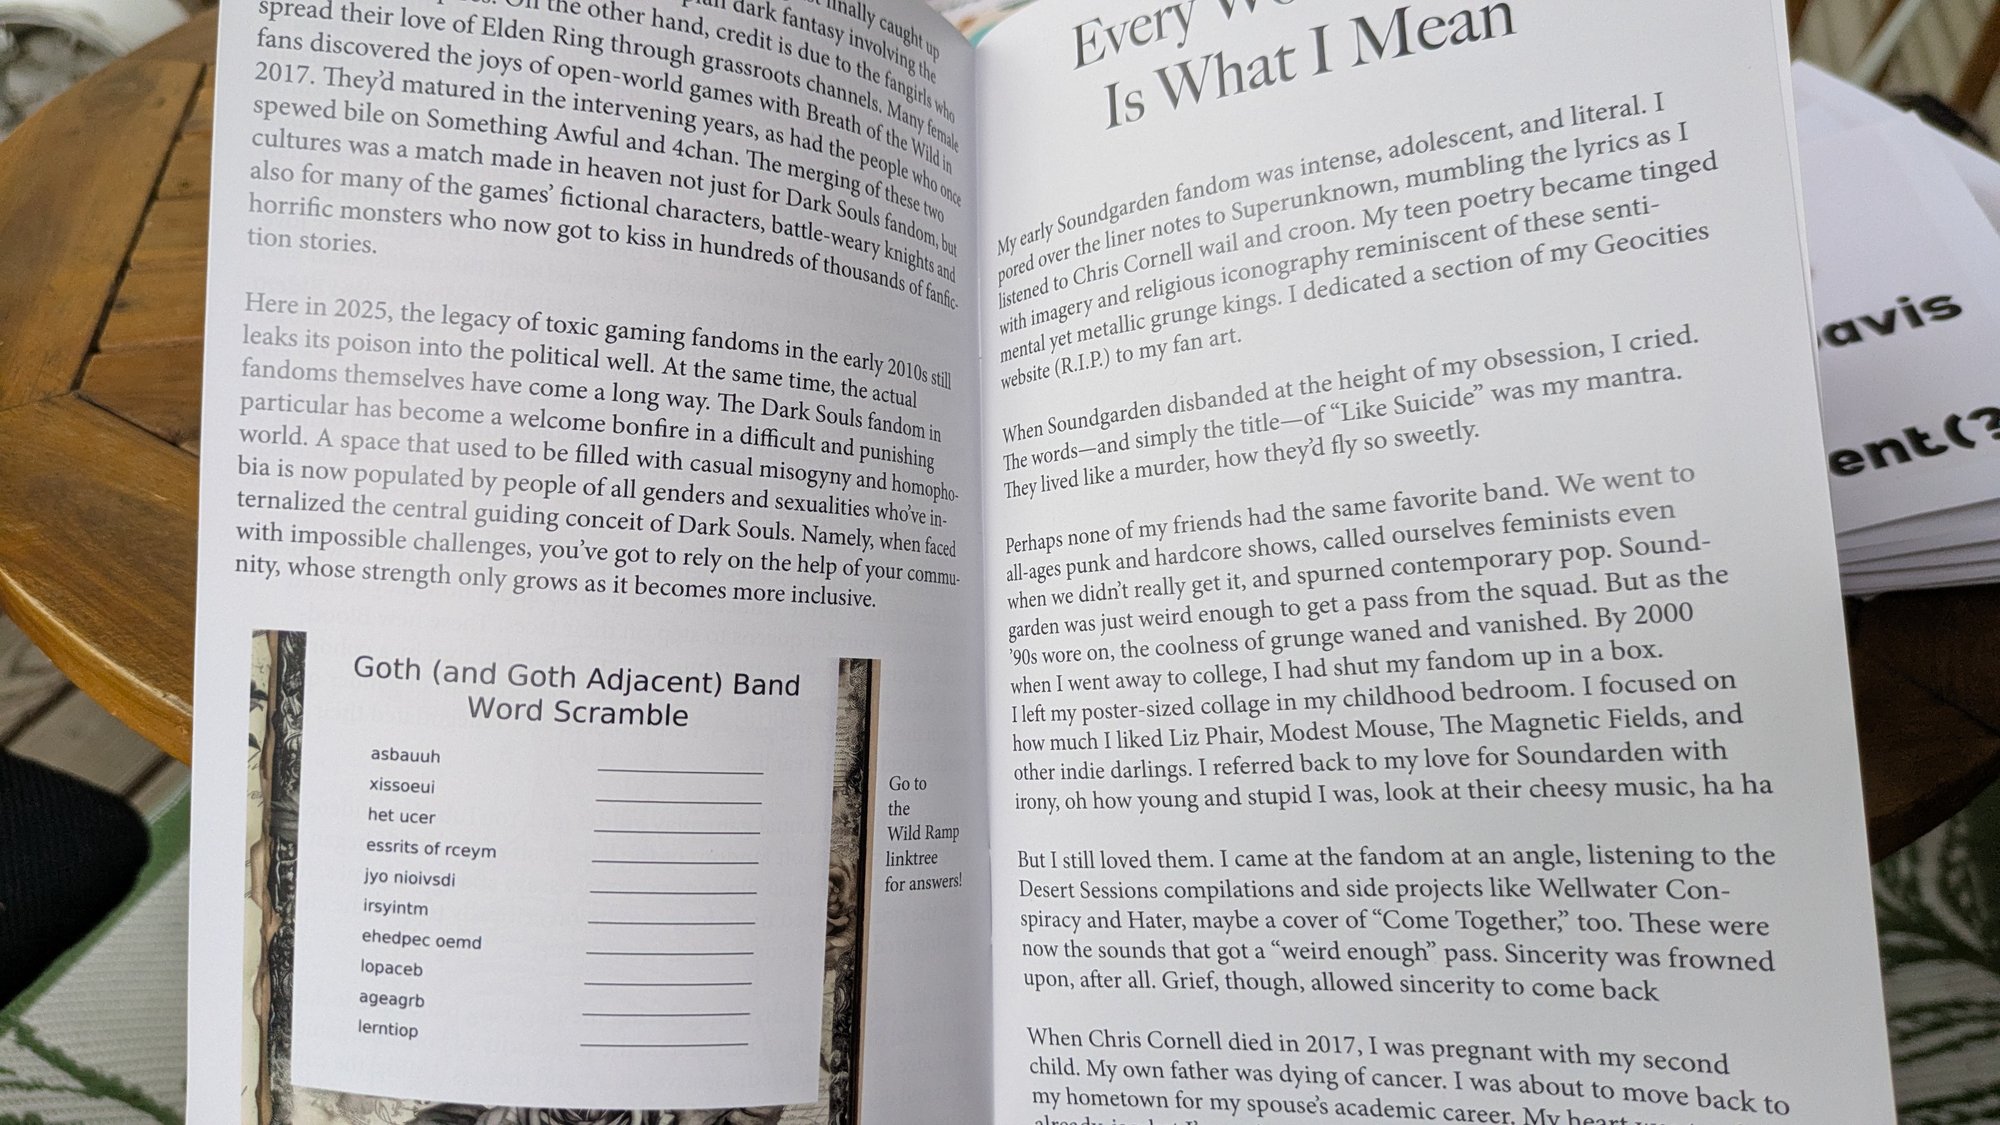 finally caught up
On the other hand, credit is due to the fangirls who
dark fantasy involving the
spread their love of Elden Ring through grassroots channels. Many female
fans discovered the joys of open-world games with Breath of the Wild in
2017. They'd matured in the intervening years, as had the people who once
spewed bile on Something Awful and 4chan. The merging of these two
cultures was a match made in heaven not just for Dark Souls fandom, but
also for many of the games' fictional characters, battle-weary knights and
horrific monsters who now got to kiss in hundreds of thousands of fanfic-
tion stories.
Here in 2025, the legacy of toxic gaming fandoms in the early 2010s still
leaks its poison into the political well. At the same time, the actual
fandoms themselves have come a long way. The Dark Souls fandom in
particular has become a welcome bonfire in a difficult and punishing
world. A space that used to be filled with casual misogyny and homopho-
bia is now populated by people of all genders and sexualities who've in-
ternalized the central guiding conceit of Dark Souls. Namely, when faced
with impossible challenges, you've got to rely on the help of your commu-
nity, whose strength only grows as it becomes more inclusive.
Goth (and Goth Adjacent) Band
Word Scramble
asbauuh
xissoeui
het ucer
essrits of rceym
jyo nioivsdi
irsyintm
ehedpec oemd
lopaceb
ageagrb
lerntiop
Go to
the
Wild Ramp
linktree
for answers!
Every
Is What I Mean
My early Soundgarden fandom was intense, adolescent, and literal. I
pored over the liner notes to Superunknown, mumbling the lyrics as I
listened to Chris Cornell wail and croon. My teen poetry became tinged
with imagery and religious iconography reminiscent of these senti-
mental yet metallic grunge kings. I dedicated a section of my Geocities
website (R.I.P.) to my fan art.
When Soundgarden disbanded at the height of my obsession, I cried.
The words—and simply the title—of “Like Suicide” was my mantra.
They lived like a murder, how they'd fly so sweetly.
Perhaps none of my friends had the same favorite band. We went to
all-ages punk and hardcore shows, called ourselves feminists even
when we didn't really get it, and spurned contemporary pop. Sound-
garden was just weird enough to get a pass from the squad. But as the
'90s wore on, the coolness of grunge waned and vanished. By 2000
when I went away to college, I had shut my fandom up in a box.
I left my poster-sized collage in my childhood bedroom. I focused on
how much I liked Liz Phair, Modest Mouse, The Magnetic Fields, and
other indie darlings. I referred back to my love for Soundarden with
irony, oh how young and stupid I was, look at their cheesy music, ha ha
But I still loved them. I came at the fandom at an angle, listening to the
Desert Sessions compilations and side projects like Wellwater Con-
spiracy and Hater, maybe a cover of “Come Together,” too. These were
now the sounds that got a “weird enough” pass. Sincerity was frowned
upon, after all. Grief, though, allowed sincerity to come back
When Chris Cornell died in 2017, I was pregnant with my second
child. My own father was dying of cancer. I was about to move back to
my hometown for my spouse's academic career. My
avis
ent(?